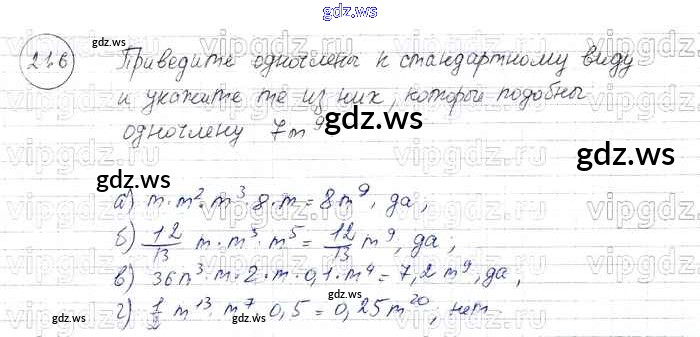 gdz.ws
21.6
Приведите одночлены к стандартному виду
и укажите те из них, которые подобны
одночлену 7m⁹
gdz.ws
а) m·m²·m³·8·m = 8m⁹, да;
б) 12/13 m·m³·m⁵ = 12/13 m⁹, да;
в) 36m³·m·2·m·0,1·m⁴ = 7,2m⁹, да;
г) 1/2 m¹³·m⁷ 0,5 = 0,25m²⁰; нет
gdz.ws
vipgdz.ws